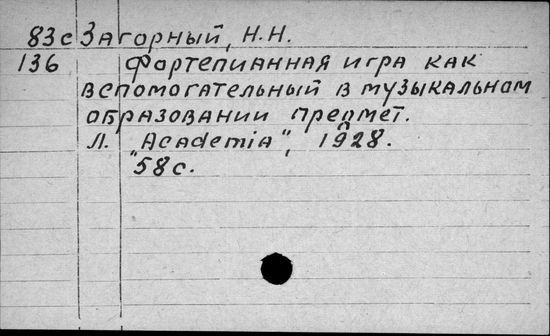 83с Загорный, Н.Н.
136 Фортепианная игра как
вспомогательный в музыкальном
образовании предмет.
Л. "Academia", 1928.
58с.